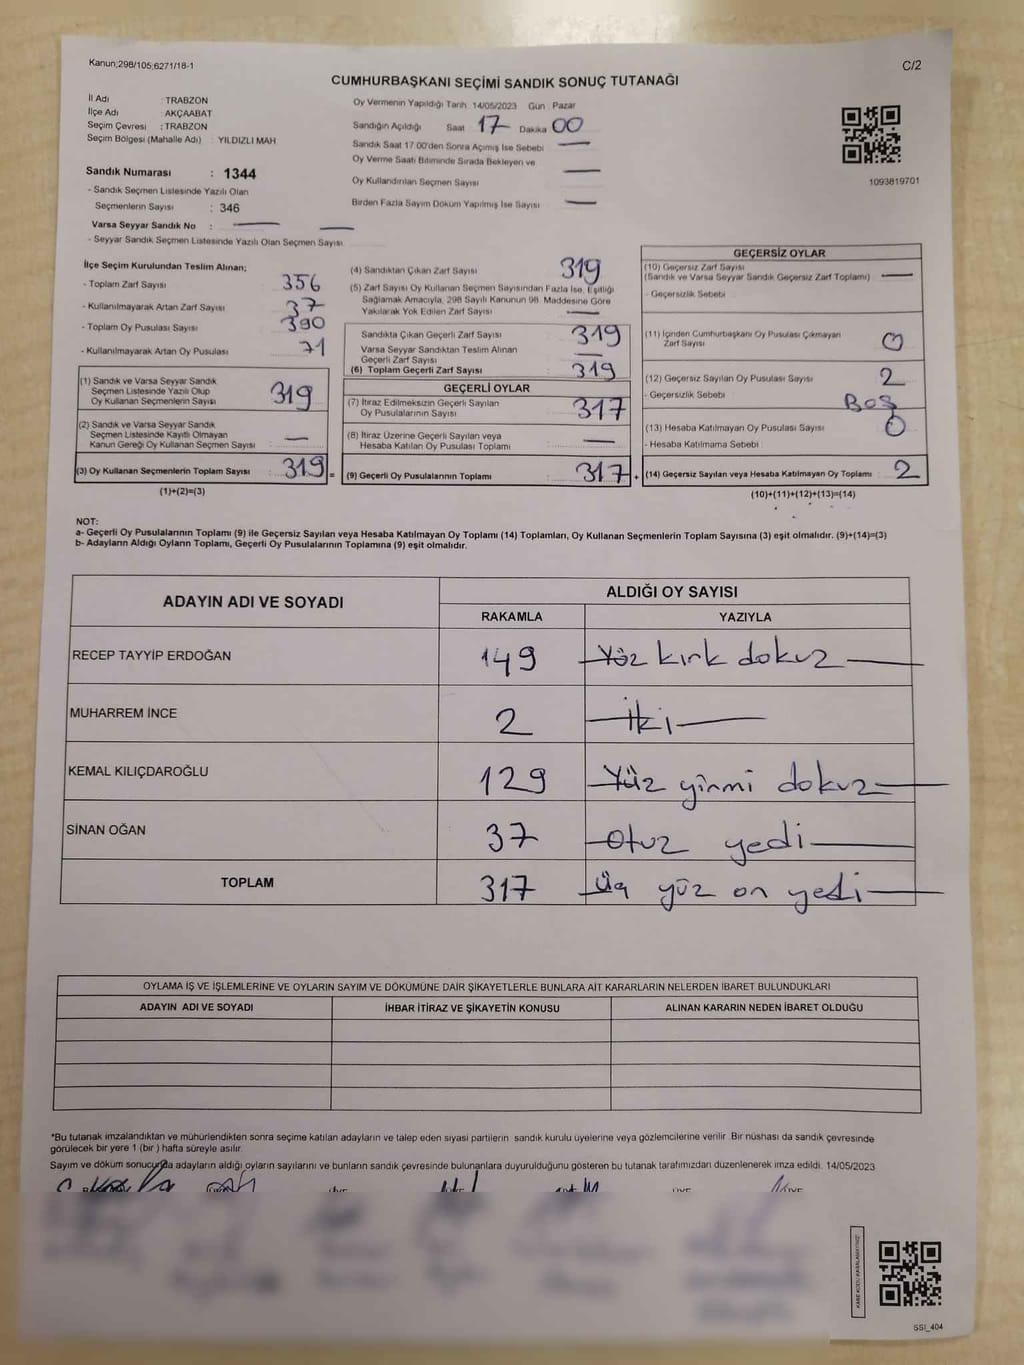 Kanun;298/105;6271/18-1
C/2
CUMHURBAŞKANI SEÇİMİ SANDIK SONUÇ TUTANAĞI
İl Adı : TRABZON
İlçe Adı : AKÇAABAT
Seçim Çevresi : TRABZON
Seçim Bölgesi (Mahalle Adı) : YILDIZLI MAH.
Sandık Numarası : 1344
- Sandık Seçmen Listesinde Yazılı Olan
Seçmenlerin Sayısı : 346
Varsa Seyyar Sandık No :
- Seyyar Sandık Seçmen Listesinde Yazılı Olan Seçmen Sayısı
Oy Vermenin Yapıldığı Tarih 14/05/2023 Gün : Pazar
Sandığın Açıldığı Saat 17 Dakika 00
Sandık Saat 17:00'den Sonra Açımış İse Sebebi
Oy Verme Saati Bitiminde Sırada Bekleyen ve
Oy Kullandırılan Seçmen Sayısı
Birden Fazla Sayım Döküm Yapılmış İse Sayısı
1093819701
İlçe Seçim Kurulundan Teslim Alınan;
- Toplam Zarf Sayısı : 356
- Kullanılmayarak Artan Zarf Sayısı : 37
- Toplam Oy Pusulası Sayısı : 390
- Kullanılmayarak Artan Oy Pusulası : 71
(1) Sandık ve Varsa Seyyar Sandık
Seçmen Listesinde Yazılı Olup
Oy Kullanan Seçmenlerin Sayısı 319
(2) Sandık ve Varsa Seyyar Sandık
Seçmen Listesinde Kayıtlı Olmayan
Kanun Gereği Oy Kullanan Seçmen Sayısı : —
(3) Oy Kullanan Seçmenlerin Toplam Sayısı : 319 =
(1)+(2)=(3)
(4) Sandıktan Çıkan Zarf Sayısı 319
(5) Zarf Sayısı Oy Kullanan Seçmen Sayısından Fazla İse, Eşitliği
Sağlamak Amacıyla, 298 Sayılı Kanunun 98. Maddesine Göre
Yakılarak Yok Edilen Zarf Sayısı : —
Sandıkta Çıkan Geçerli Zarf Sayısı : 319
Varsa Seyyar Sandıktan Teslim Alınan
Geçerli Zarf Sayısı : —
(6) Toplam Geçerli Zarf Sayısı : 319
GEÇERLİ OYLAR
(7) İtiraz Edilmeksizin Geçerli Sayılan
Oy Pusulalarının Sayısı : 317
(8) İtiraz Üzerine Geçerli Sayılan veya
Hesaba Katılan Oy Pusulası Toplamı : —
(9) Geçerli Oy Pusulalarının Toplamı : 317 +
GEÇERSİZ OYLAR
(10) Geçersiz Zarf Sayısı
(Sandık ve Varsa Seyyar Sandık Geçersiz Zarf Toplamı) : —
- Geçersizlik Sebebi :
(11) İçinden Cumhurbaşkanı Oy Pusulası Çıkmayan
Zarf Sayısı : 0
(12) Geçersiz Sayılan Oy Pusulası Sayısı : 2
- Geçersizlik Sebebi : Boş
(13) Hesaba Katılmayan Oy Pusulası Sayısı : 0
- Hesaba Katılmama Sebebi :
(14) Geçersiz Sayılan veya Hesaba Katılmayan Oy Toplamı : 2
(10)+(11)+(12)+(13)=(14)
NOT:
a- Geçerli Oy Pusulalarının Toplamı (9) ile Geçersiz Sayılan veya Hesaba Katılmayan Oy Toplamı (14) Toplamları, Oy Kullanan Seçmenlerin Toplam Sayısına (3) eşit olmalıdır. (9)+(14)=(3)
b- Adayların Aldığı Oyların Toplamı, Geçerli Oy Pusulalarının Toplamına (9) eşit olmalıdır.
ADAYIN ADI VE SOYADI ALDIĞI OY SAYISI
RAKAMLA YAZIYLA
RECEP TAYYİP ERDOĞAN 149 Yüz kırk dokuz
MUHARREM İNCE 2 İki
KEMAL KILIÇDAROĞLU 129 Yüz yirmi dokuz
SİNAN OĞAN 37 Otuz yedi
TOPLAM 317 Üç yüz on yedi
OYLAMA İŞ VE İŞLEMLERİNE VE OYLARIN SAYIM VE DÖKÜMÜNE DAİR ŞİKAYETLERLE BUNLARA AİT KARARLARIN NELERDEN İBARET BULUNDUKLARI
ADAYIN ADI VE SOYADI İHBAR İTİRAZ VE ŞİKAYETİN KONUSU ALINAN KARARIN NEDEN İBARET OLDUĞU
*Bu tutanak imzalandıktan ve mühürlendikten sonra seçime katılan adayların ve talep eden siyasi partilerin sandık kurulu üyelerine veya gözlemcilerine verilir. Bir nüshası da sandık çevresinde
görülecek bir yere 1 (bir ) hafta süreyle asılır.
Sayım ve döküm sonucunda adayların aldığı oyların sayılarını ve bunların sandık çevresinde bulunanlara duyurulduğunu gösteren bu tutanak tarafımızdan düzenlenerek imza edildi. 14/05/2023
SSI_404